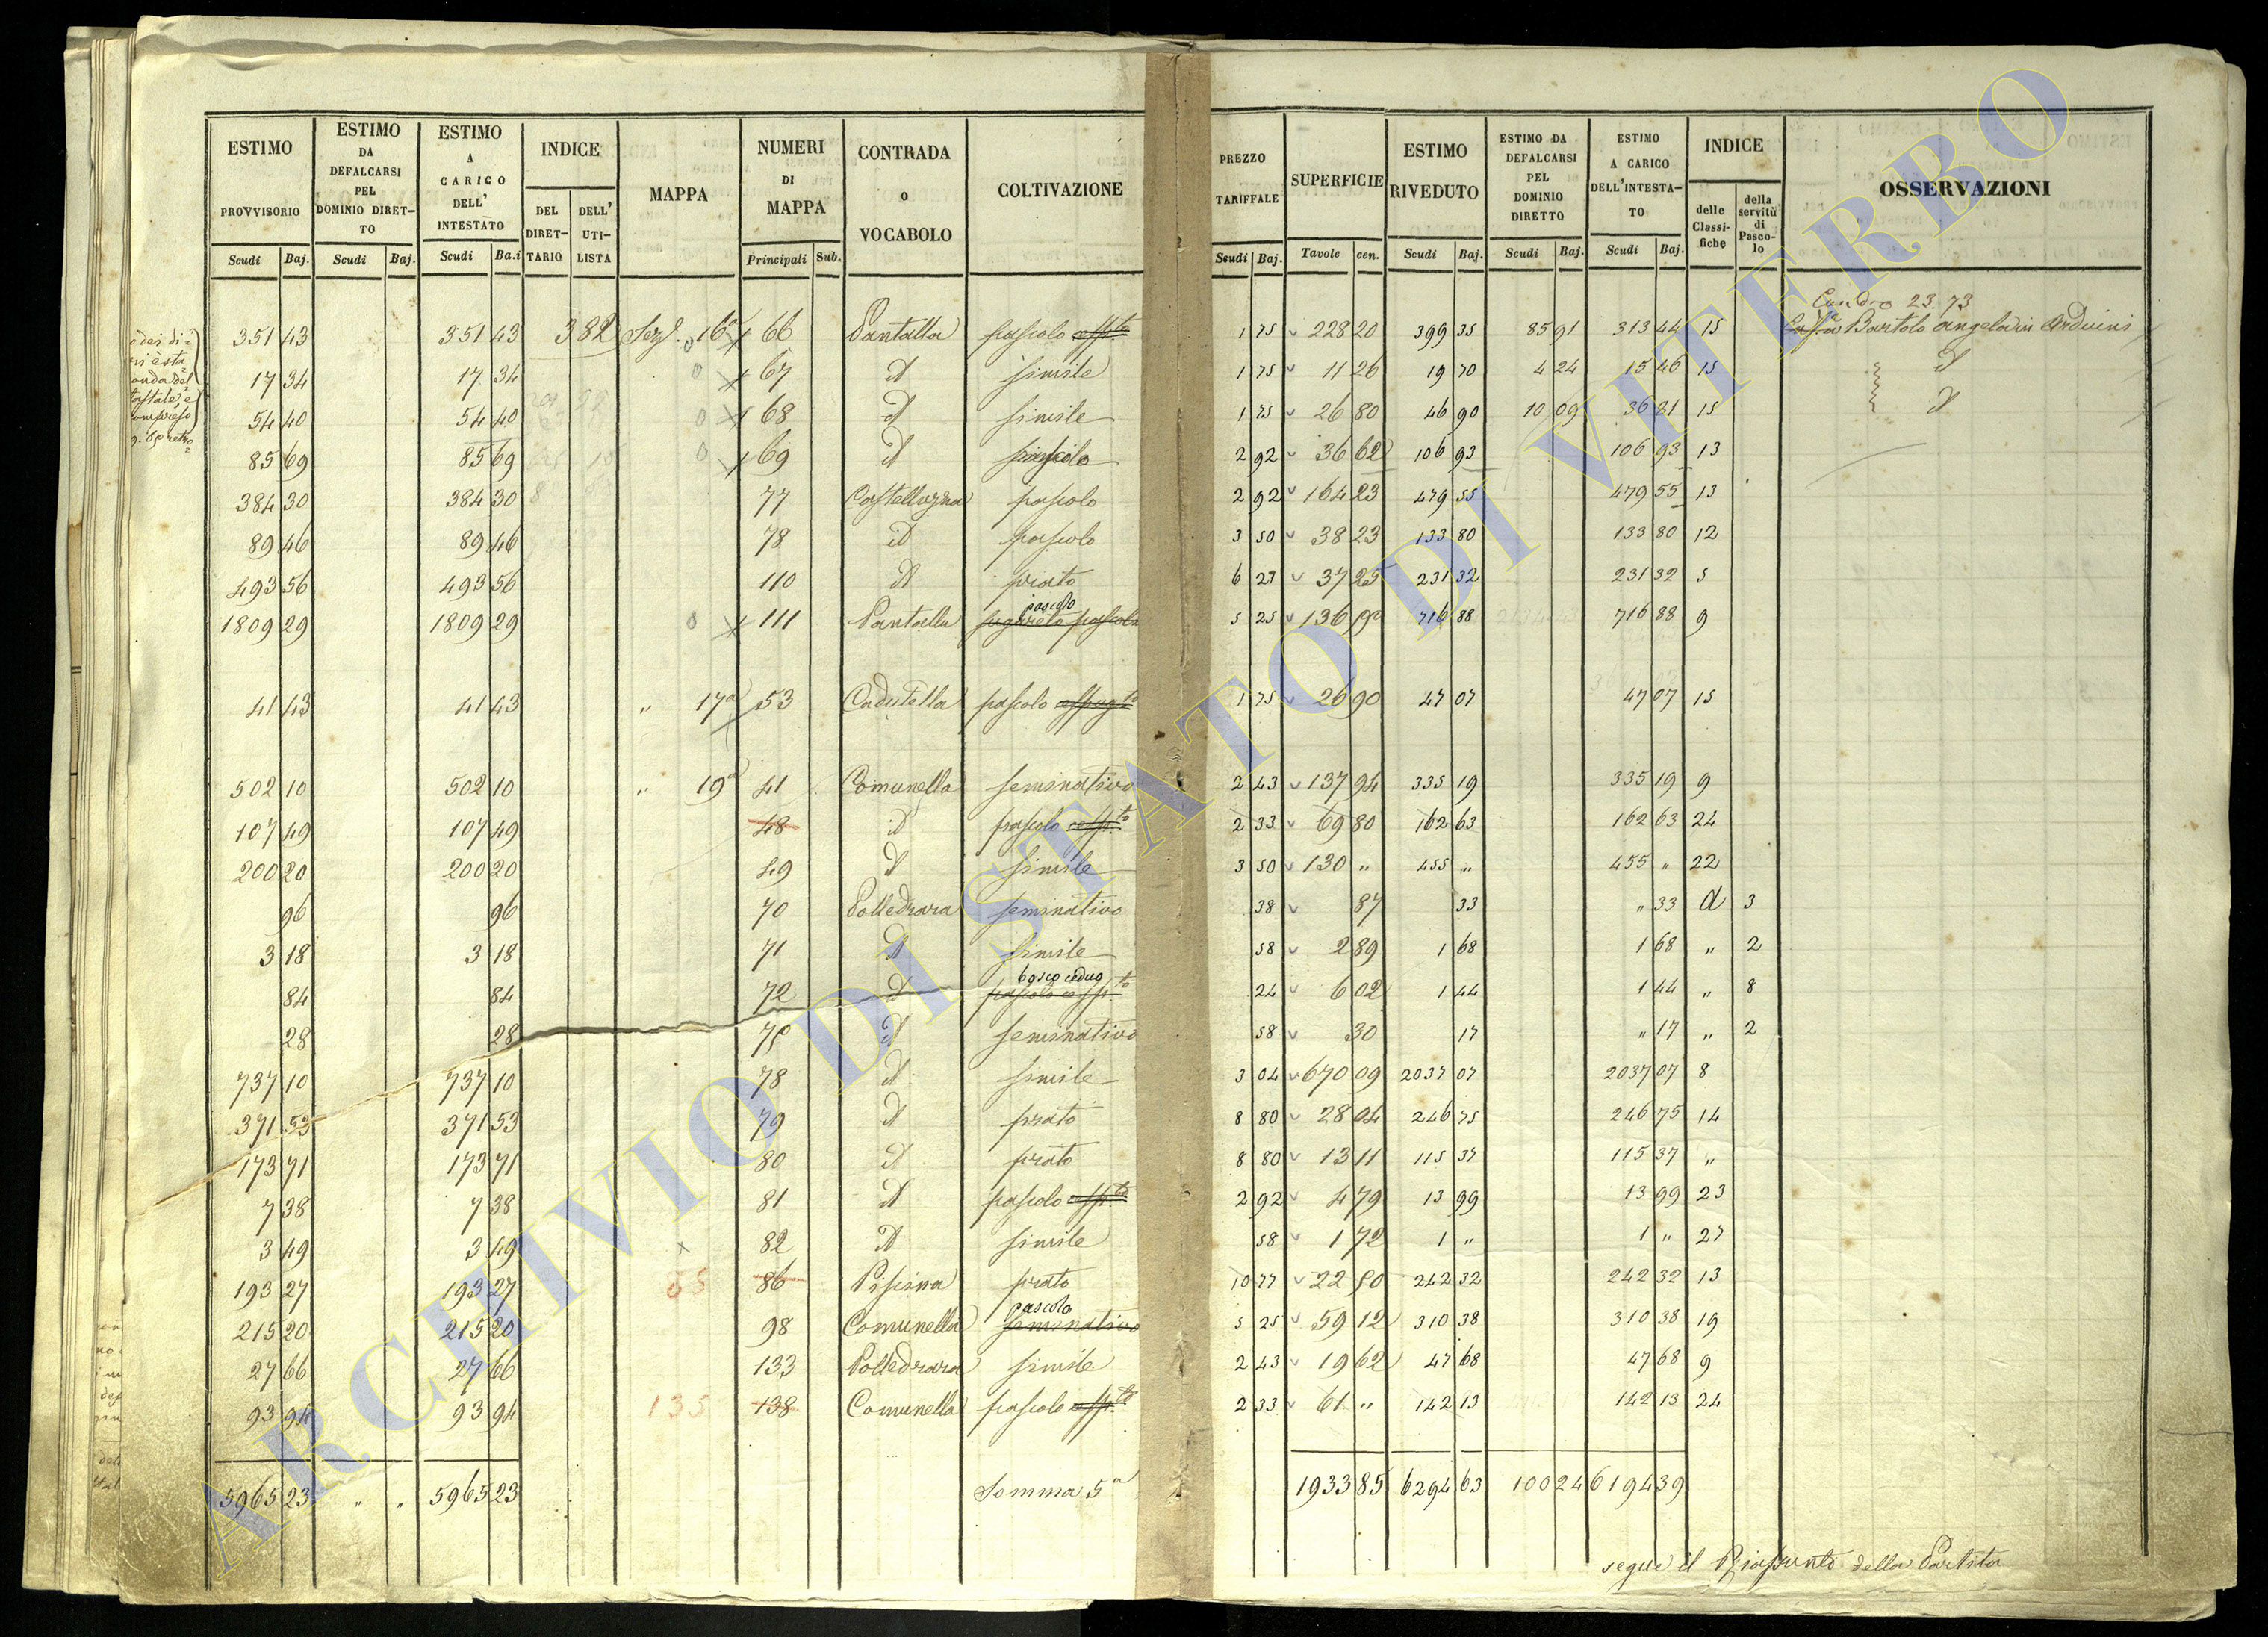 ESTIMO PROVVISORIO
ESTIMO DA DEFALCARSI PEL DOMINIO DIRET-TO
ESTIMO A CARICO DELL' INTESTATO
INDICE
DEL DIRET-TARIO
DELL' UTI-LISTA
MAPPA
NUMERI DI MAPPA
CONTRADA o VOCABOLO
COLTIVAZIONE
PREZZO TARIFFALE
SUPERFICIE
ESTIMO RIVEDUTO
ESTIMO DA DEFALCARSI PEL DOMINIO DIRETTO
ESTIMO A CARICO DELL'INTESTA-TO
INDICE
delle Classi-fiche
della servitù di Pasco-lo
OSSERVAZIONI
Scudi Baj. Scudi Baj. Scudi Ba.i Principali Sub. Scudi Baj. Tavole cen. Scudi Baj. Scudi Baj. Scudi Baj.
23 73
351 43 351 43 382 Sez. 16a 66 Pantalla pascolo 1 75 228 20 399 35 85 91 313 44 15 Bartolo Angeladin Arduini
17 34 17 34 67 id simile 1 75 11 26 19 70 4 24 15 46 15 id
54 40 54 40 68 id simile 1 75 26 80 46 90 10 09 36 81 15 id
85 69 85 69 69 id 2 92 36 62 106 93 106 93 13
384 30 384 30 77 Castelluzza pascolo 2 92 164 23 479 55 479 55 13
89 46 89 46 78 id pascolo 3 50 38 23 133 80 133 80 12
493 56 493 56 110 id prato 6 21 37 25 231 32 231 32 5
pascolo
1809 29 1809 29 111 Pantalla pascolo 5 25 136 716 88 716 88 9
41 43 41 43 " 17a 53 pascolo 1 75 26 90 47 07 47 07 15
502 10 502 10 " 19a 41 Comunella seminativo 2 43 137 94 335 19 335 19 9
107 49 107 49 48 id pascolo 2 33 69 80 162 63 162 63 24
200 20 200 20 49 id simile 3 50 130 " 455 " 455 " 22
96 96 70 Polledrara seminativo 38 87 33 " 33 d 3
3 18 3 18 71 id simile 58 2 89 1 68 1 68 " 2
bosco ceduo
84 84 72 id pascolo 24 6 02 1 44 1 44 " 8
28 28 75 id seminativo 58 30 17 " 17 " 2
737 10 737 10 78 id simile 3 04 670 09 2037 07 2037 07 8
371 53 371 53 79 id prato 8 80 28 04 246 75 246 75 14
173 71 173 71 80 id prato 8 80 13 11 115 37 115 37 "
7 38 7 38 81 id pascolo 2 92 4 79 13 99 13 99 23
3 49 3 49 82 id simile 58 1 72 1 " 1 " 27
193 27 193 27 86 Piscina prato 10 77 22 50 242 32 242 32 13
pascolo
215 20 215 20 98 Comunella seminativo 5 25 59 12 310 38 310 38 19
27 66 27 66 133 Polledrara simile 2 43 19 62 47 68 47 68 9
93 94 93 94 135 138 Comunella pascolo 2 33 61 " 142 13 142 13 24
5965 23 " " 5965 23 Somma 5a 1933 85 6294 63 100 24 6194 39
segue il Riassunto della Partita
ARCHIVIO DI STATO DI VITERBO